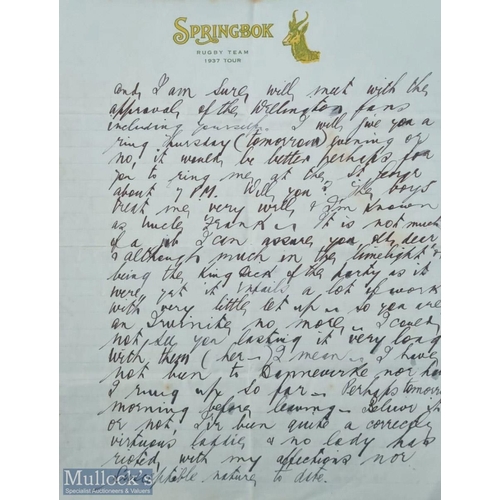 SPRINGBOK
RUGBY TEAM
1937 TOUR
and I am sure, will meet with the
approval of the Wellington fans
including yourself. I will give you a
ring Thursday (tomorrow) evening or
no, it would be better perhaps for
you to ring me at the St. George
about 7 P.M. Will you? The boys
treat me very well & I'm known
as Uncle Frank. It is not much
of a job I can assure you, my dear,
& although much in the limelight &
being the King of the party as it
were, yet it entails a lot of work
with very little let up - so you are
an no more - I could
not see you lasting it very long
with them (her - I mean -. I have
not been to Dannevirke nor have
I rung up so far - Perhaps tomorrow
morning before leaving - Believe it
or not, I've been quite a correct
virtuous laddie & no lady has
rioted with my affections nor
susceptible nature to date.
Mullock's
Specialist Auctioneers & Valuers